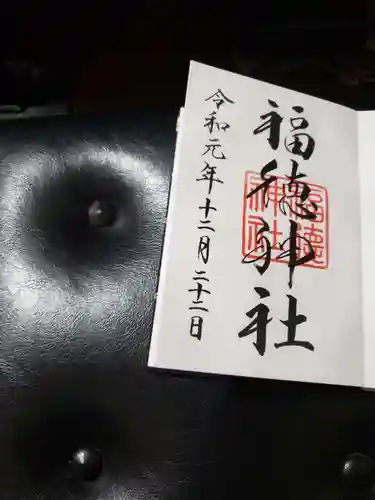 福徳神社
令和元年十二月二十二日
福徳
神社